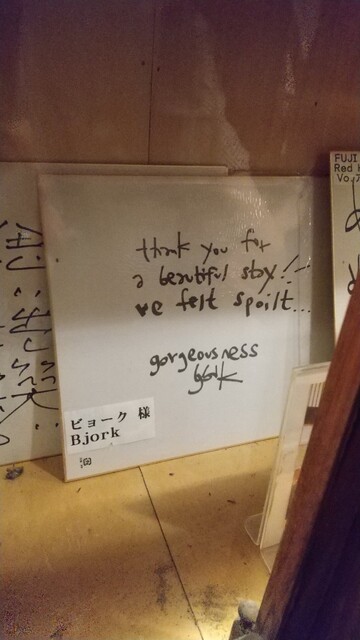 thank you for
a beautiful stay!!
we felt spoilt...
gorgeousness
björk
ビョーク 様
Bjork
FUJI
Red H
Vo.